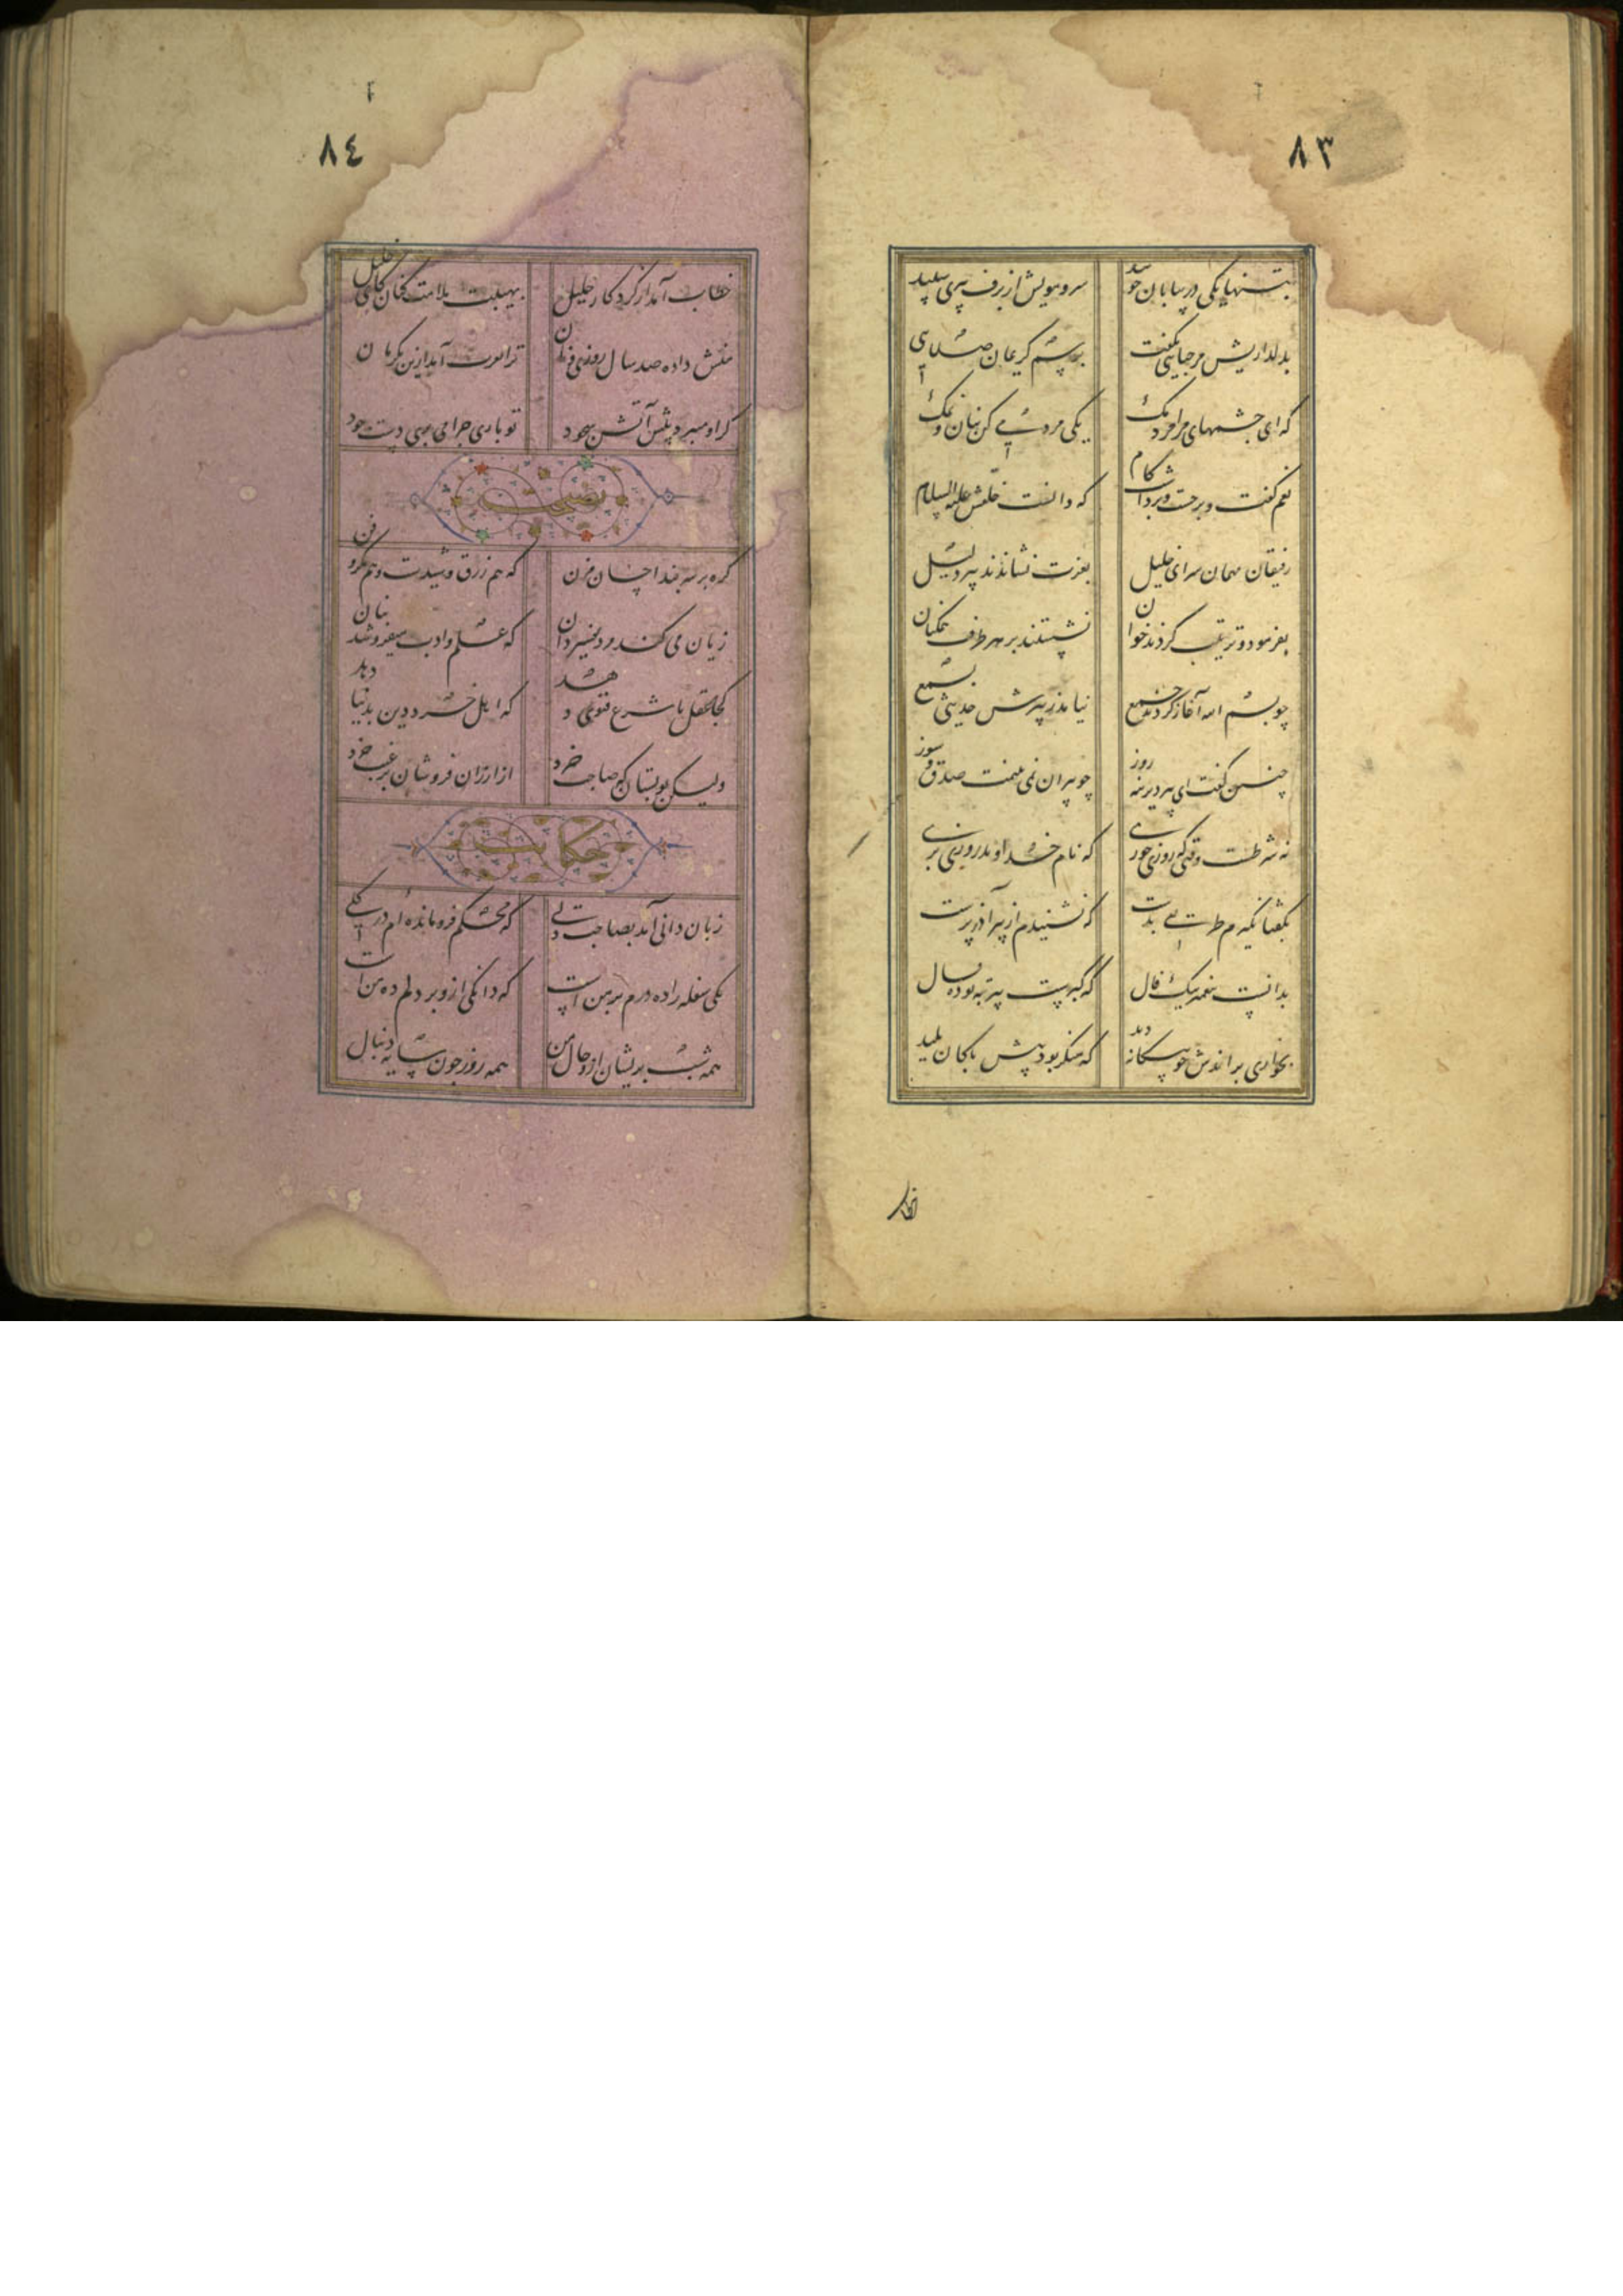 ٨٣
بتنها یکی در بیابان چو بید سر و مویش از برف پیری سپید
بدلداریش مرحبایی بگفت برسم کریمان صلایی
که ای چشمهای مرا مردمک یکی مردمی کن بنان و نمک
نعم گفت و برجست و برداشت کام که دانست خلقش علیه السلام
رفیقان مهمان سرای خلیل بعزت نشاندند پیر ذلیل
بفرمود و ترتیب کردند خوان نشستند بر هر طرف همکنان
چو بسم الله آغاز کردند جمع نیامد ز پیرش حدیثی بسمع
چنین گفت ای پیر دیرینه روز چو پیران نمی بینمت صدق و سوز
نه شرطست وقتی که روزی خوری که نام خداوند روزی بری
بگفتا نگیرم طریقی بدست که نشنیدم از پیر آذرپرست
بدانست پیغمبر نیک فال که گبرست پیر تبه بوده حال
بخواری براندش چو بیگانه دید که منکر بود پیش پاکان پلید
خطاب
٨٤
خطاب آمد از کردکار جلیل بهیبت ملامت کنان کای خلیل
منش داده صد سال روزی و جان ترا نفرت آمد ازین یکزمان
کر او میبرد پیش آتش سجود تو باری چرا می بری دست جود
نصیحت
گره بر سر بند احسان مزن که هم زرق و شیدست و هم مکر و فن
زیان می کند مرد تفسیردان که علم و ادب میفروشد بنان
کجا عقل با شرع فتوی دهد که اهل خرد دین بدنیا دهد
ولیکن تو بستان که صاحب خرد از ارزان فروشان برغبت خرد
حکایت
زبان دانی آمد بصاحب دلی که محکم فرومانده ام در گلی
یکی سفله را ده درم بر من است که دانگی ازو بر دلم ده من است
همه شب پریشان ازو حال من همه روز چون سایه دنبال